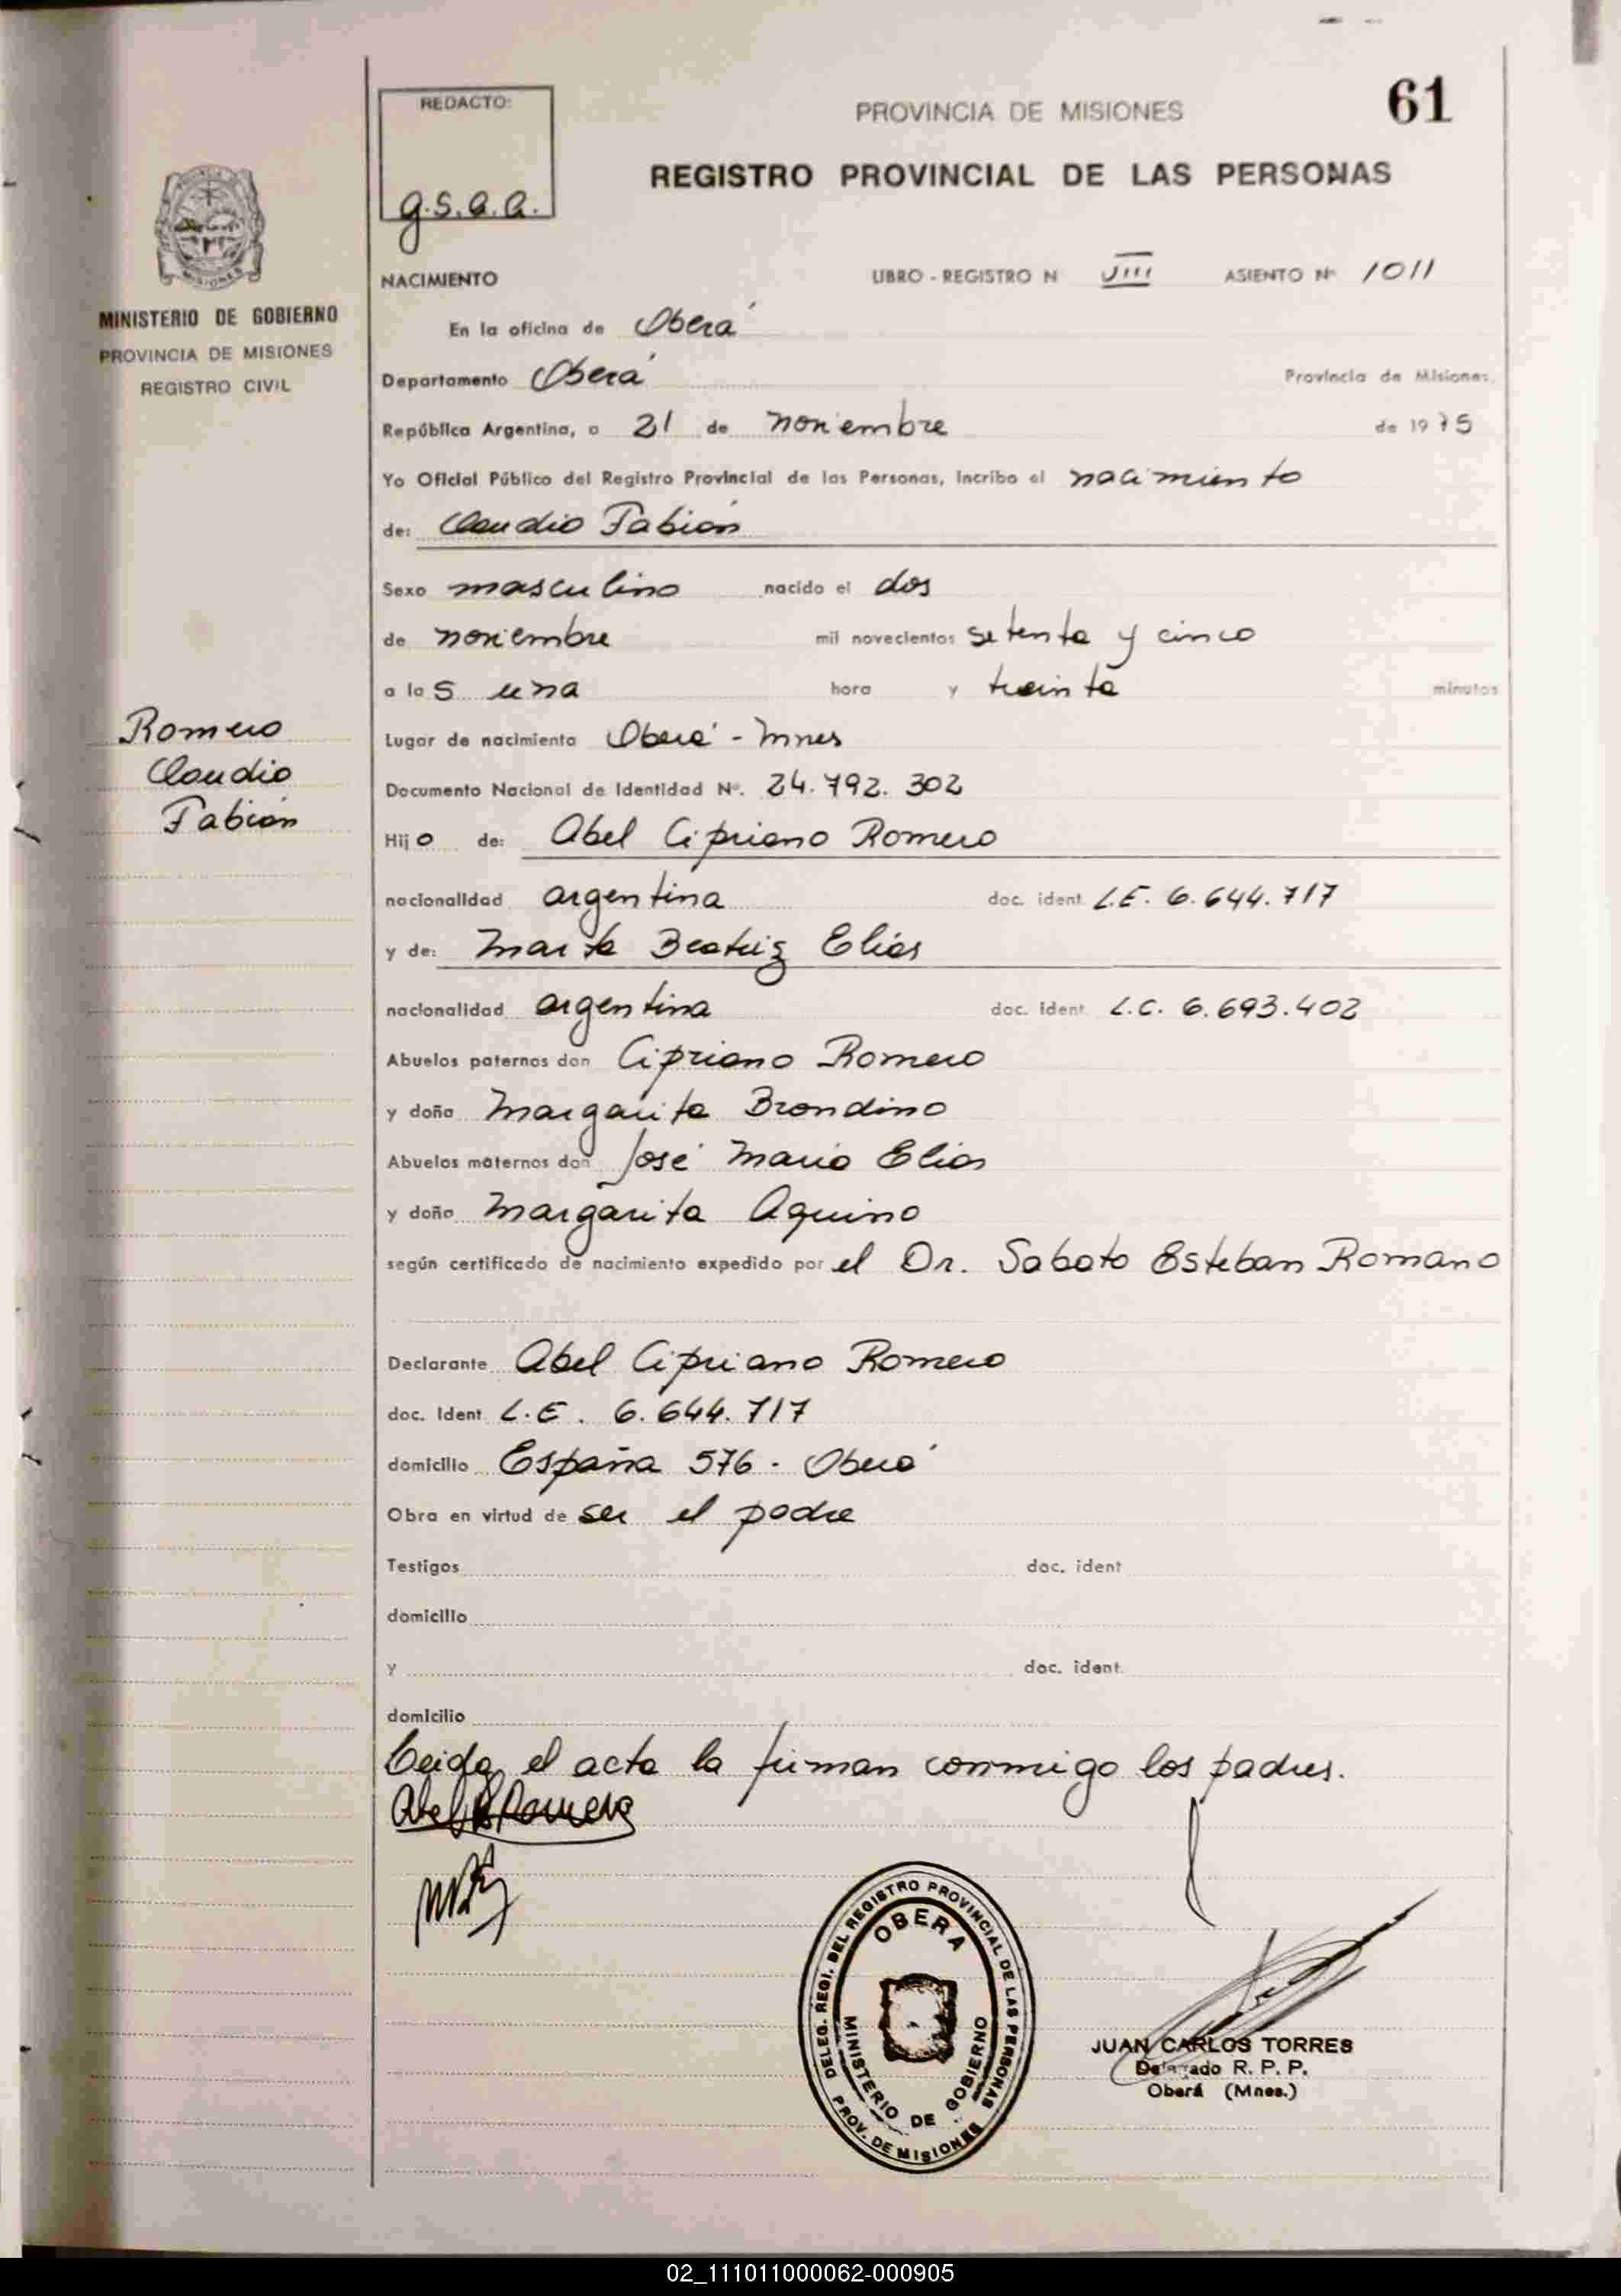 REDACTO:
g.s.a.a.
PROVINCIA DE MISIONES
61
REGISTRO PROVINCIAL DE LAS PERSONAS
MINISTERIO DE GOBIERNO
PROVINCIA DE MISIONES
REGISTRO CIVIL
NACIMIENTO LIBRO - REGISTRO N VIII ASIENTO Nº 1011
En la oficina de Oberá
Departamento Oberá Provincia de Misiones.
República Argentina, a 21 de noviembre de 1975
Yo Oficial Público del Registro Provincial de las Personas, Incribo el nacimiento
de: Claudio Fabián
Sexo masculino nacido el dos
de noviembre mil novecientos setenta y cinco
a las una hora y treinta minutos
Romero
Claudio
Fabián
Lugar de nacimiento Oberá - Mnes
Documento Nacional de Identidad Nº. 24.792.302
Hijo de: Abel Cipriano Romero
nacionalidad argentina doc. ident. L.E. 6.644.717
y de: Marta Beatriz Elias
nacionalidad argentina doc. ident. L.C. 6.693.402
Abuelos paternos don Cipriano Romero
y doña Margarita Brondino
Abuelos maternos don José Mario Elias
y doña Margarita Aquino
según certificado de nacimiento expedido por el Dr. Sabato Esteban Romano
Declarante Abel Cipriano Romero
doc. Ident. L.E. 6.644.717
domicilio España 576 - Oberá
Obra en virtud de ser el padre
Testigos doc. ident
domicilio
y doc. ident.
domicilio
Leida el acta la firman conmigo los padres.
Abel Romero
DELEG. REGI. DEL REGISTRO PROVINCIAL DE LAS PERSONAS
OBERA
MINISTERIO DE GOBIERNO
PROV. DE MISIONES
JUAN CARLOS TORRES
Delegado R. P. P.
Oberá (Mnes.)
02_111011000062-000905